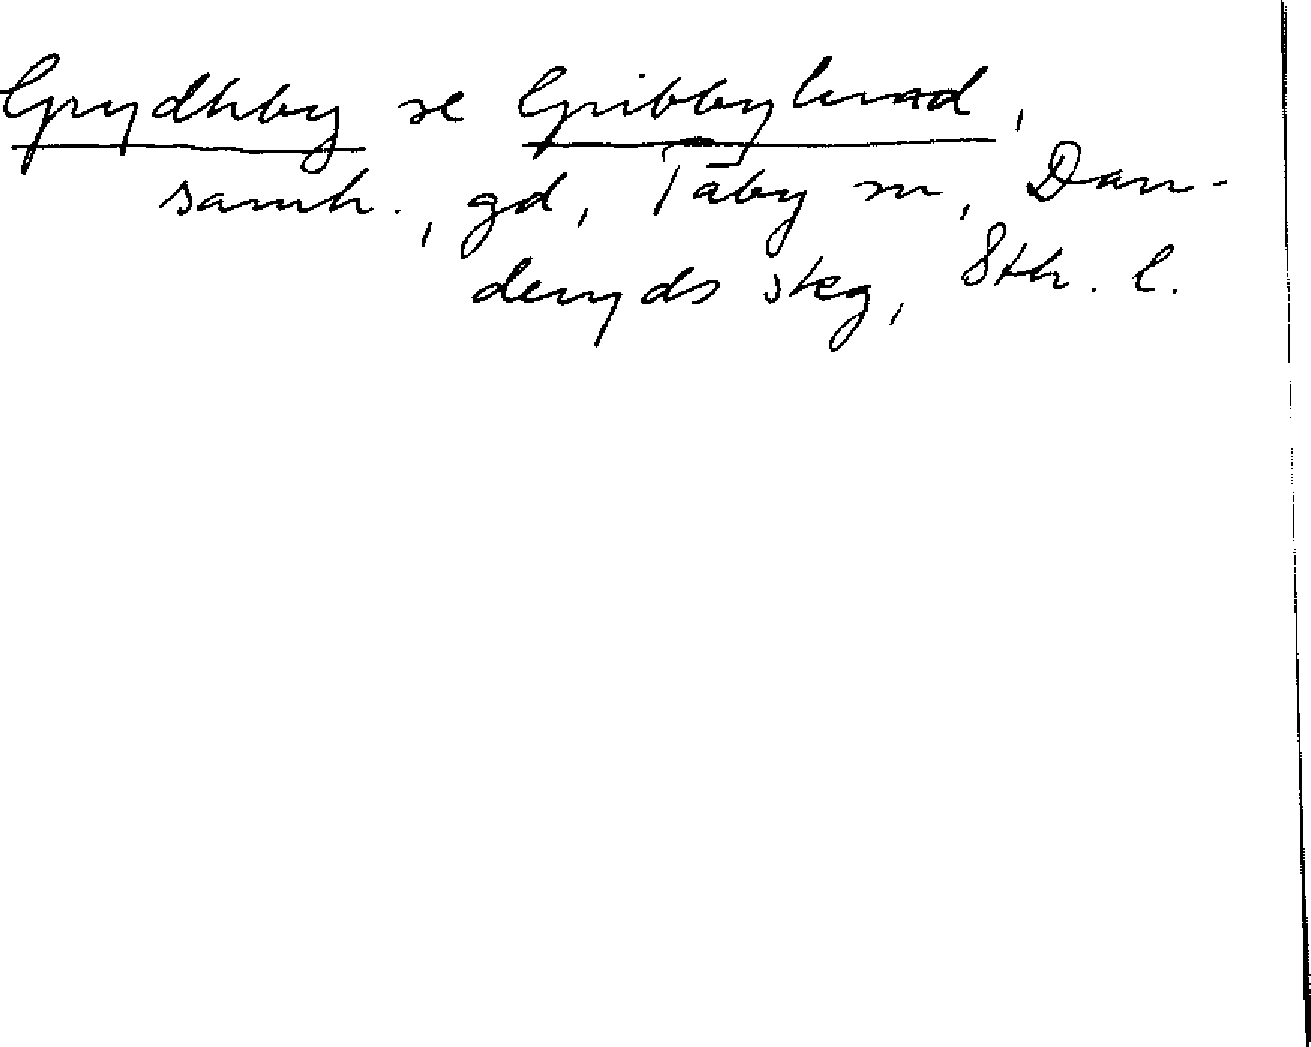 Grydhby se Gribbylund,
samh., gd, Täby sn, Dan-
deryds skg, Sth. l.